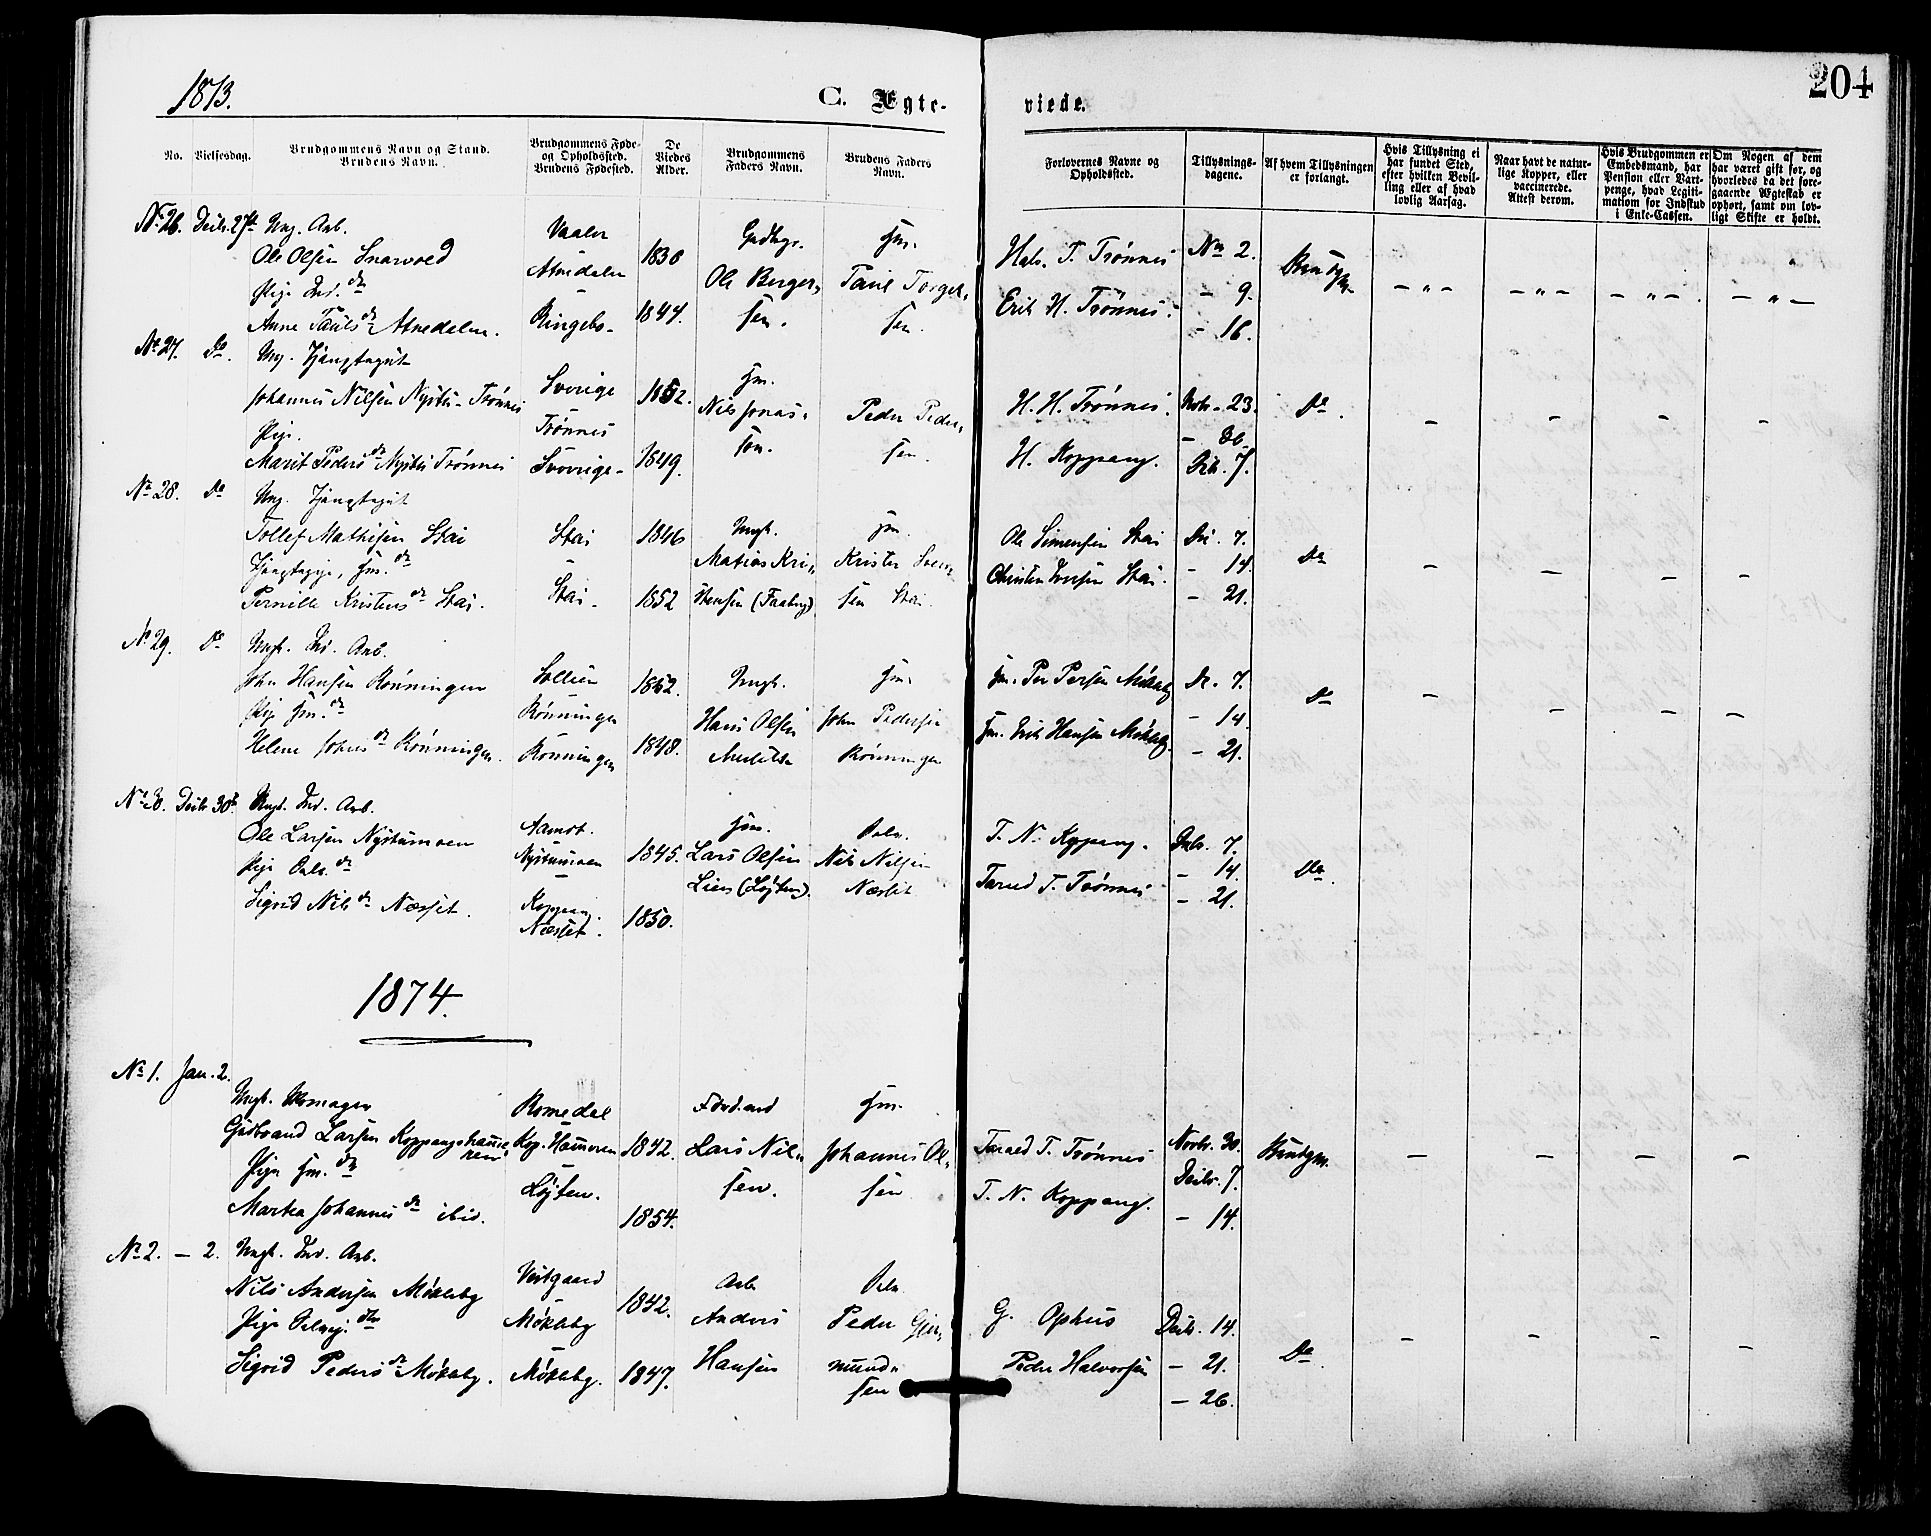 1873.
C. Ægte-
viede.
204
No.
Vielsesdag.
Brudgommens Navn og Stand.
Brudens Navn.
Brudgommens Føde-
og Opholdssted.
Brudens Fødested.
De
Viedes
Alder.
Brudgommens
Faders Navn.
Brudens Faders
Navn.
Forlovernes Navne og
Opholdssted.
Tillysnings-
dagene.
Af hvem Tillysningen
er forlangt.
Hvis Tillysning ei
har fundet Sted,
efter hvilken Bevil-
ling eller af hvad
lovlig Aarsag.
Naar havt de natur-
lige Kopper, eller
vaccinerede.
Attest derom.
Hvis Brudgommen er
Embedsmand, har
Pension eller Vart-
penge, hvad Legiti-
mation for Indskud
i Enke-Cassen.
Om Nogen af dem
har været gift før, og
hvorledes da det fore-
gaaende Ægteskab er
ophørt, samt om lov-
ligt Skifte er holdt.
No 26. Decbr. 27de Ung. Arb.
Ole Olsen Snarvold
Pige Ind. dr
Anne Pauls dr Atnedalen.
Vaaler
Atnedalen
Ringebo
1838
1844.
Gadbgr.
Ole Berger-
sen.
Hm.
Paul Torger-
sen.
Halv. T. Trønnes
Erik H. Trønnes.
Nov. 2.
- 9.
- 16.
Brudgm.
- " - - " - - " - - " -
No 27. Do. Ung. Tjenestegut
Johannes Nilsen Nystu-Trønnes
Pige.
Marit Peders dr Nystu Trønnes
Sverige
Trønnes
Sverige
1852.
1849.
Hm.
Nils Jonas-
sen.
Peder Peder-
sen.
H. H. Trønnes.
H. Koppang.
Nov. 23.
- 30.
Dcb. 7.
Do.
- - - -
No 28. Do Ung. Tjenestegut
Tollef Mathisen Stai
Tjenestepige, Hm. dr
Pernille Kristens dr Stai.
Stai
Stai.
1846
1852
Ungk.
Matias Kri-
stensen (Faaberg)
Hm
Krister Iver-
sen Stai.
Ole Simensen Stai
Christen Iversen Stai.
De. 7.
- 14.
- 21.
Do
- - - -
No 29. Do Ungk. Ind. Arb.
John Hansen Rønningen
Pige Hm. dr
Helene Johns dr Rønningen.
Sollien
Rønningen
Rønningen
1852.
1848.
Ungk.
Hans Olsen
Hm.
John Pedersen
Rønningen
Hm. Per Persen Møkleby
Hm. Erik Hansen Møkleby
De. 7.
- 14.
- 21.
Do
- - - -
No 30. Decbr 30te Ungk. Ind. Arb.
Ole Larsen Nystumoen
Pige Selv. dr
Sigrid Nils dr Næsset.
Aamot.
Nystumoen
Koppang.
Næsset.
1845.
1850.
Hm.
Lars Olsen
Lien (Løiten).
Selv.
Nils Nilsen
Næsset
T. N. Koppang.
Tarald T. Trønnes
Dcb. 7.
- 14.
- 21.
Do.
1874.
No 1. Jan. 2.
Ungk. Skomager
Gulbrand Larsen Koppangshamme-
ren
Pige Hm. dr
Marthea Johannes dr ibid.
Romedal
Kop. Hammeren
Løiten.
1842.
1854.
Lars Nil-
sen.
Hm.
Johannes Ol-
sen
Tarald T. Trønnes
T. N. Koppang.
Novbr. 30.
Decbr. 7.
- 14.
Brudgm.
- - - -
No 2. - 2. Ungk. Ind. Arb.
Nils Andersen Møkleby
Pige Selvej. dtr
Sigrid Peders dr Møkleby.
Vestgaard
Møkleby
Møkleby.
1842.
1847.
Arb
Anders
Hansen
Selv.
Peder Gjer-
mund-
sen
G. Ophus
Peder Halvorsen
Decbr. 14.
- 21.
- 26.
Do.
- - - -